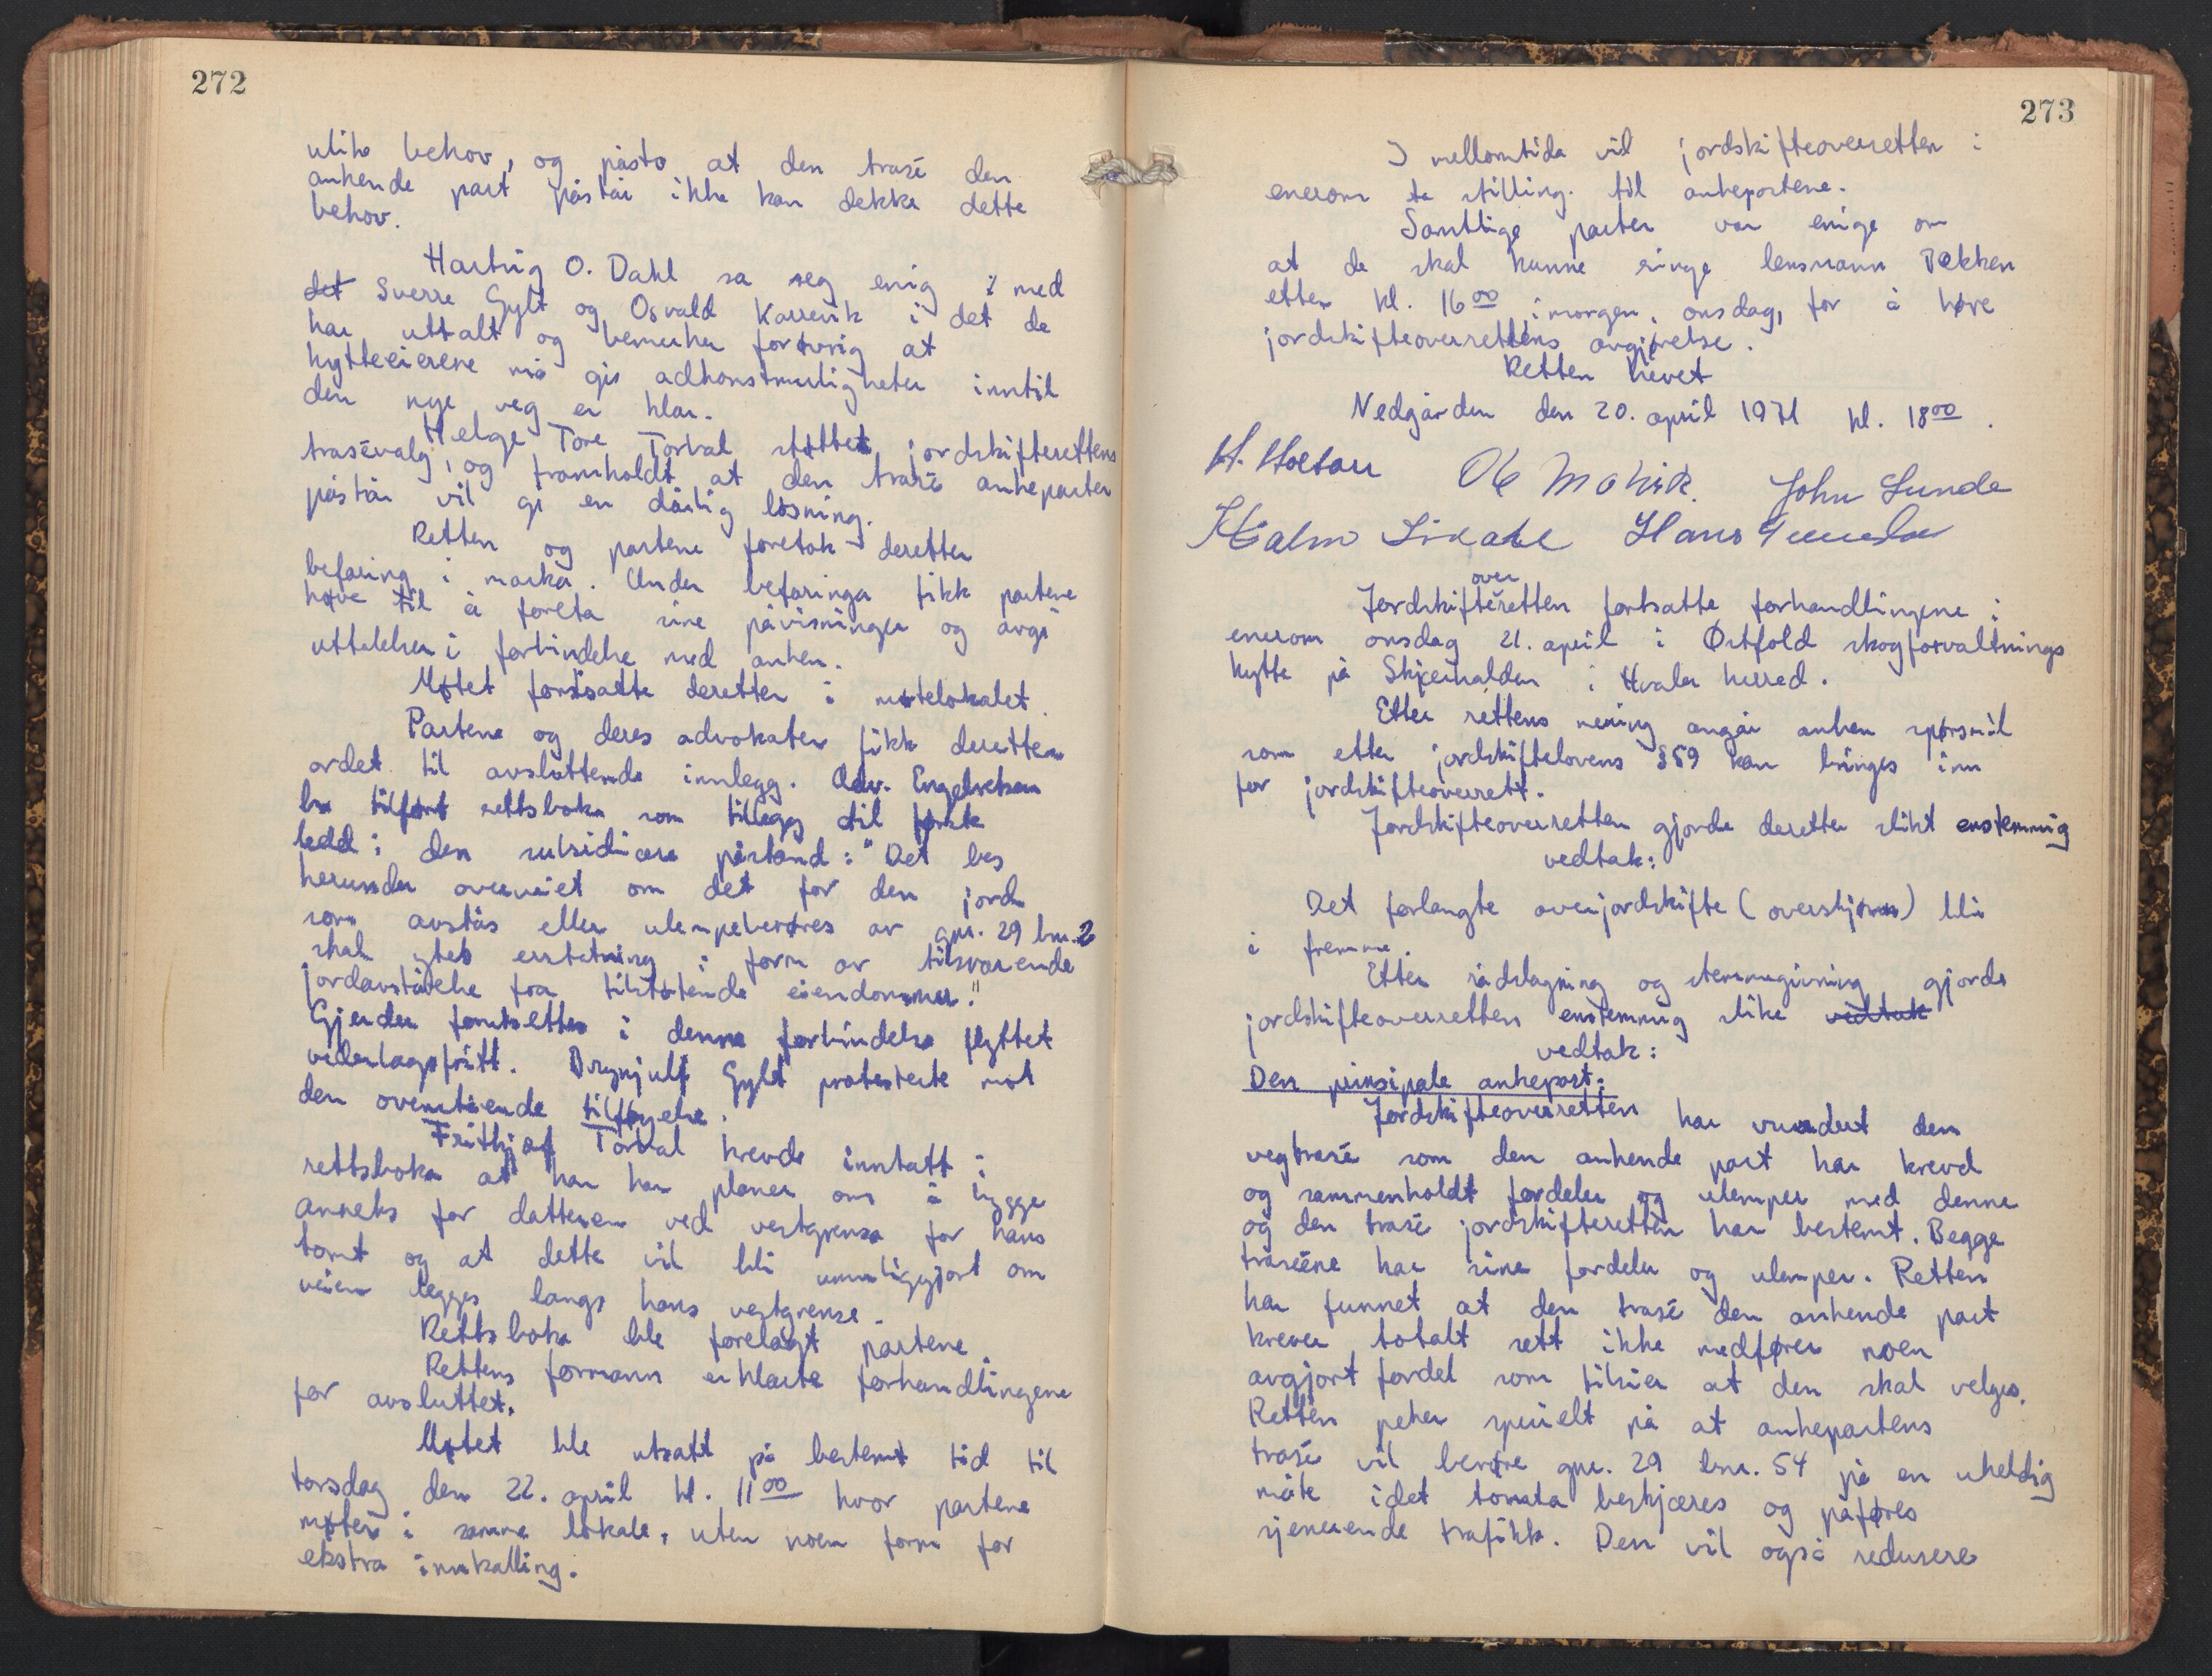 272
ulike behov, og påsto at den trasé den
ankende part påstår ikke kan dekke dette
behov.
Hartvig O. Dahl sa seg enig i med
det Sverre Gylt og Osvald Karrevik i det de
har uttalt og bemerker forøvrig at
hytteeierene må gis adkomstmuligheter inntil
den nye veg er klar.
Helge Tore Torkal støttet jordskifterettens
trasévalg, og framholdt at den trasé ankeparten
påstår vil gi en dårlig løsning.
Retten og partene foretok deretter
befaring i marka. Under befaringa fikk partene
høve til å foreta sine påvisninger og avgi
uttalelser i forbindelse med anken.
Møtet fortsatte deretter i møtelokalet.
Partene og deres advokater fikk deretter
ordet til avsluttende innlegg. Adv. Engelsvtsen
ba tilført rettsboka som tillegg til første
ledd i den subsidiære påstand: "Det bes
herunder overveiet om det for den jord
som avstås eller ulempeberøres av gnr. 29 bnr. 2
skal ytes erstatning i form av tilsvarende
jordavståelse fra tilstøtende eiendommer."
Gjerder forutsettes i denne forbindelse flyttet
vederlagsfritt. Brynjulf Gylt protesterte mot
den ovenstående tilføyelse.
Frithjof Torkal krevde inntatt i
rettsboka at han har planer om å bygge
anneks for datteren ved vestgrensa for hans
tomt og at dette vil bli umuliggjort om
veien legges langs hans vestgrense.
Rettsboka ble forelagt partene.
Rettens formann erklærte forhandlingene
for avsluttet.
Møtet ble utsatt på bestemt tid til
torsdag den 22. april kl. 11 00 hvor partene
møter i samme lokale, uten noen form for
ekstra innkalling.
273
I mellomtida vil jordskifteoverretten i
enerom ta stilling til ankepartene.
Samtlige parter var enige om
at de skal kunne ringe lensmann Bekken
etter kl. 16 00 imorgen, onsdag, for å høre
jordskifteoverrettens avgjørelse.
Retten hevet
Nedgården den 20. april 1971 kl. 18 00.
H. Holtan Ole John Lunde
Hans
over
Jordskifteretten fortsatte forhandlingene i
enerom onsdag 21. april i Østfold skogforvaltnings
hytte på Skjærhalden i Hvaler herred.
Etter rettens mening angår anken spørsmål
som etter jordskiftelovens § 89 kan bringes inn
for jordskifteoverrett.
Jordskifteoverretten gjorde deretter slikt enstemmig
vedtak:
Det forlangte overjordskifte (overskjønn) blir
i fremme.
Etter rådslagning og stemmegivning gjorde
jordskifteoverretten enstemmig slike vedtak
vedtak:
Den prinsipale ankepart:
Jordskifteoverretten har vurdert den
vegtrasé som den ankende part har krevd
og sammenholdt fordeler og ulemper med denne
og den trasé jordskifteretten har bestemt. Begge
traséene har sine fordeler og ulemper. Retten
har funnet at den trasé den ankende part
krever totalt sett ikke medfører noen
avgjort fordel som tilsier at den skal velges.
Retten peker spesielt på at ankepartens
trasé vil berøre gnr. 29 bnr. 54 på en uheldig
måte idet tomta beskjæres og påføres
sjenerende trafikk. Den vil også redusere